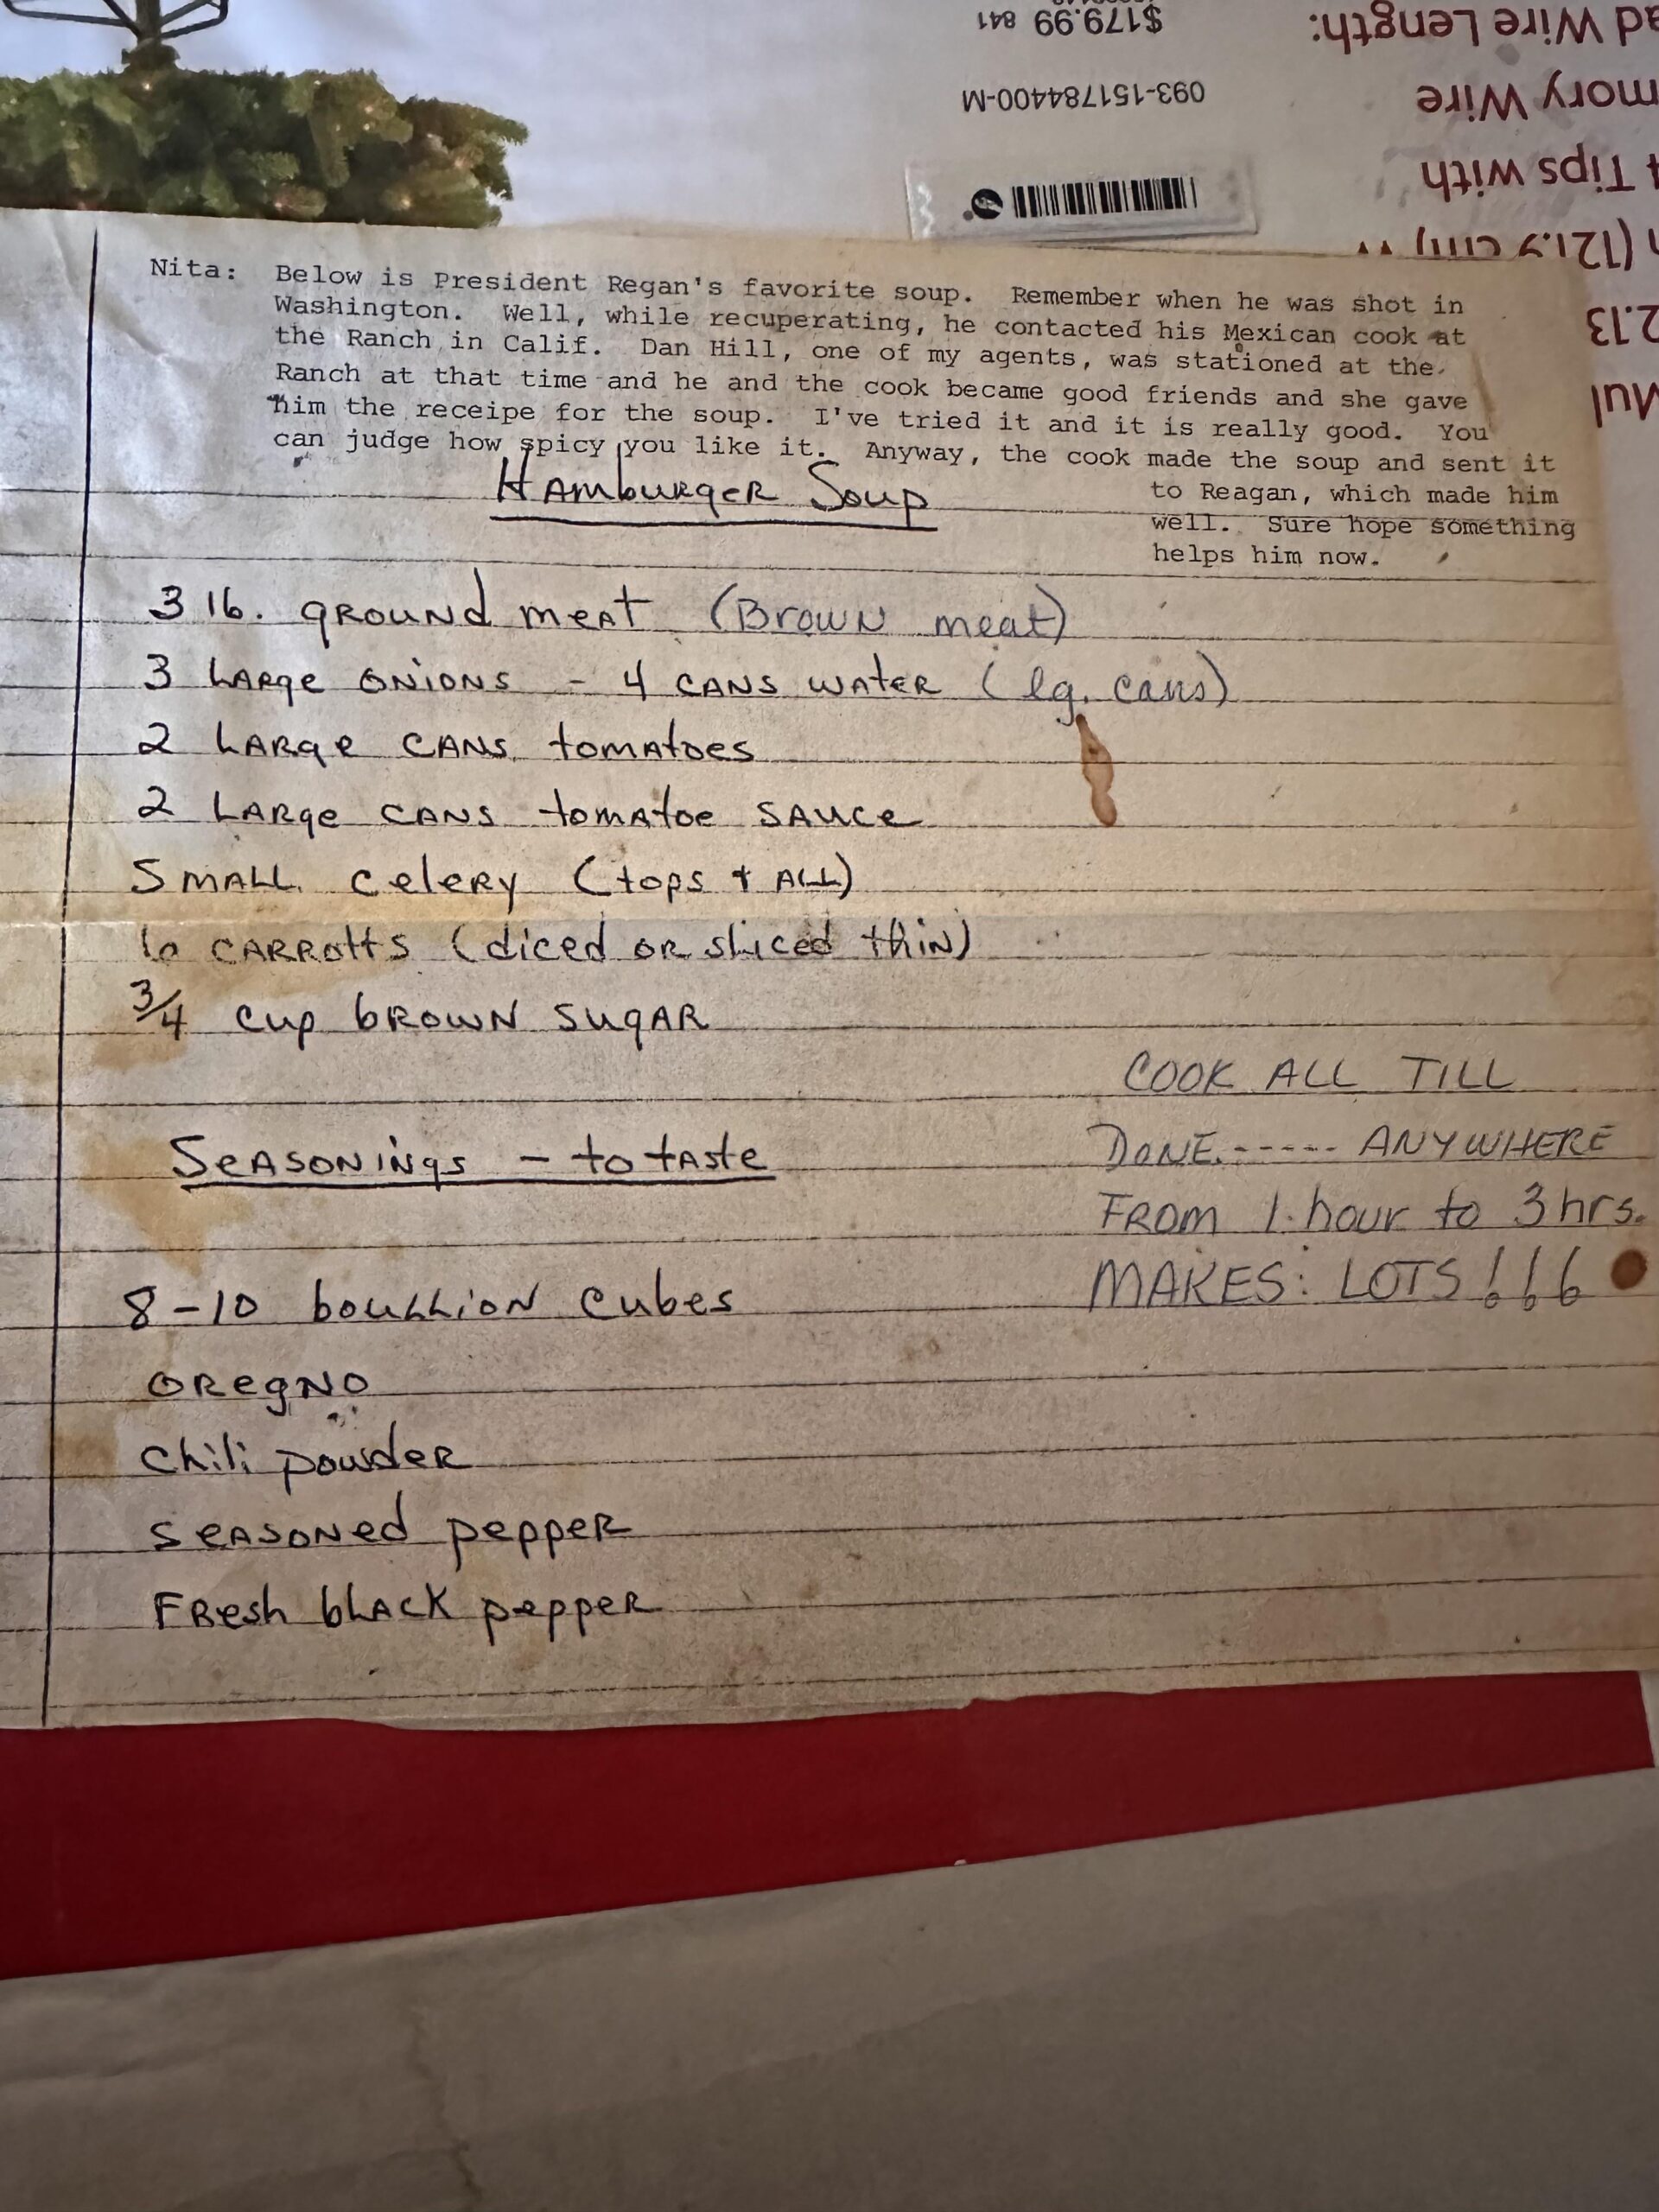 $179.99 841
ad Wire Length:
093-151784400-M
mory Wire
Tips with
(121.9 cm)
2.13
Mul
Nita: Below is President Regan's favorite soup. Remember when he was shot in
Washington. Well, while recuperating, he contacted his Mexican cook at
the Ranch in Calif. Dan Hill, one of my agents, was stationed at the
Ranch at that time and he and the cook became good friends and she gave
him the receipe for the soup. I've tried it and it is really good. You
can judge how spicy you like it. Anyway, the cook made the soup and sent it
to Reagan, which made him
well. Sure hope something
helps him now.
Hamburger Soup
3 lb. ground meat (Brown meat)
3 Large onions - 4 cans water (lg. cans)
2 Large cans tomatoes
2 Large cans tomatoe sauce
Small celery (tops & all)
6 carrotts (diced or sliced thin)
3/4 cup brown sugar
COOK ALL TILL
DONE.----- ANYWHERE
FROM 1 hour to 3 hrs.
MAKES: LOTS!!!
Seasonings - to taste
8-10 boullion cubes
oregno
chili powder
seasoned pepper
Fresh black pepper